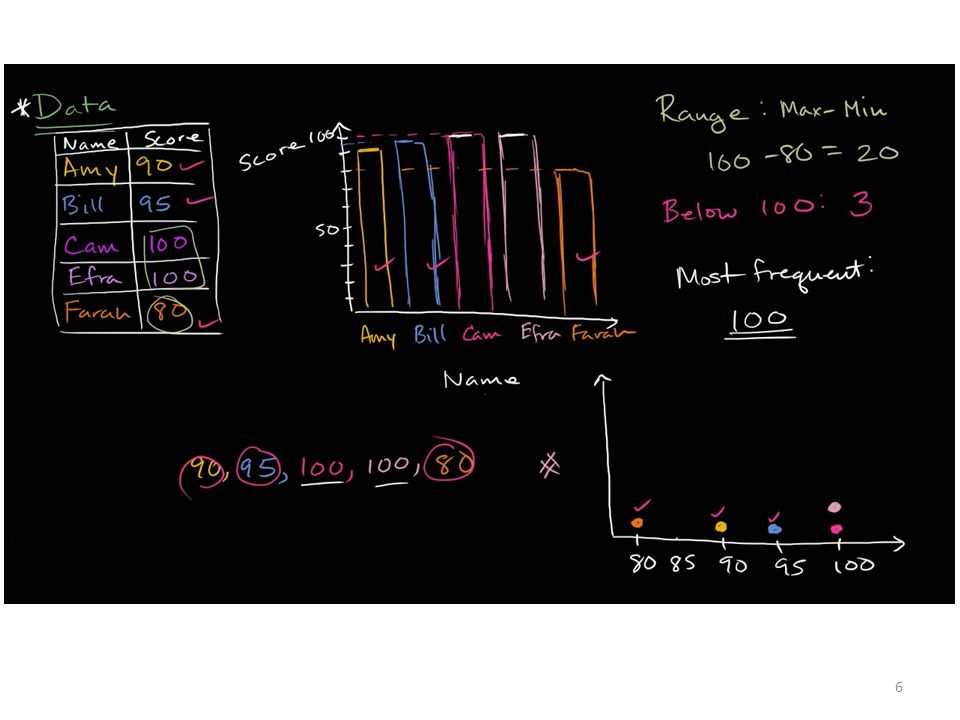 * Data
Name Score
Amy 90
Bill 95
Cam 100
Efra 100
Farah 80
Score
100
50
Amy Bill Cam Efra Farah
Name
Range: Max-Min
100 -80 = 20
Below 100: 3
Most frequent:
100
90, 95, 100, 100, 80 *
80 85 90 95 100
6